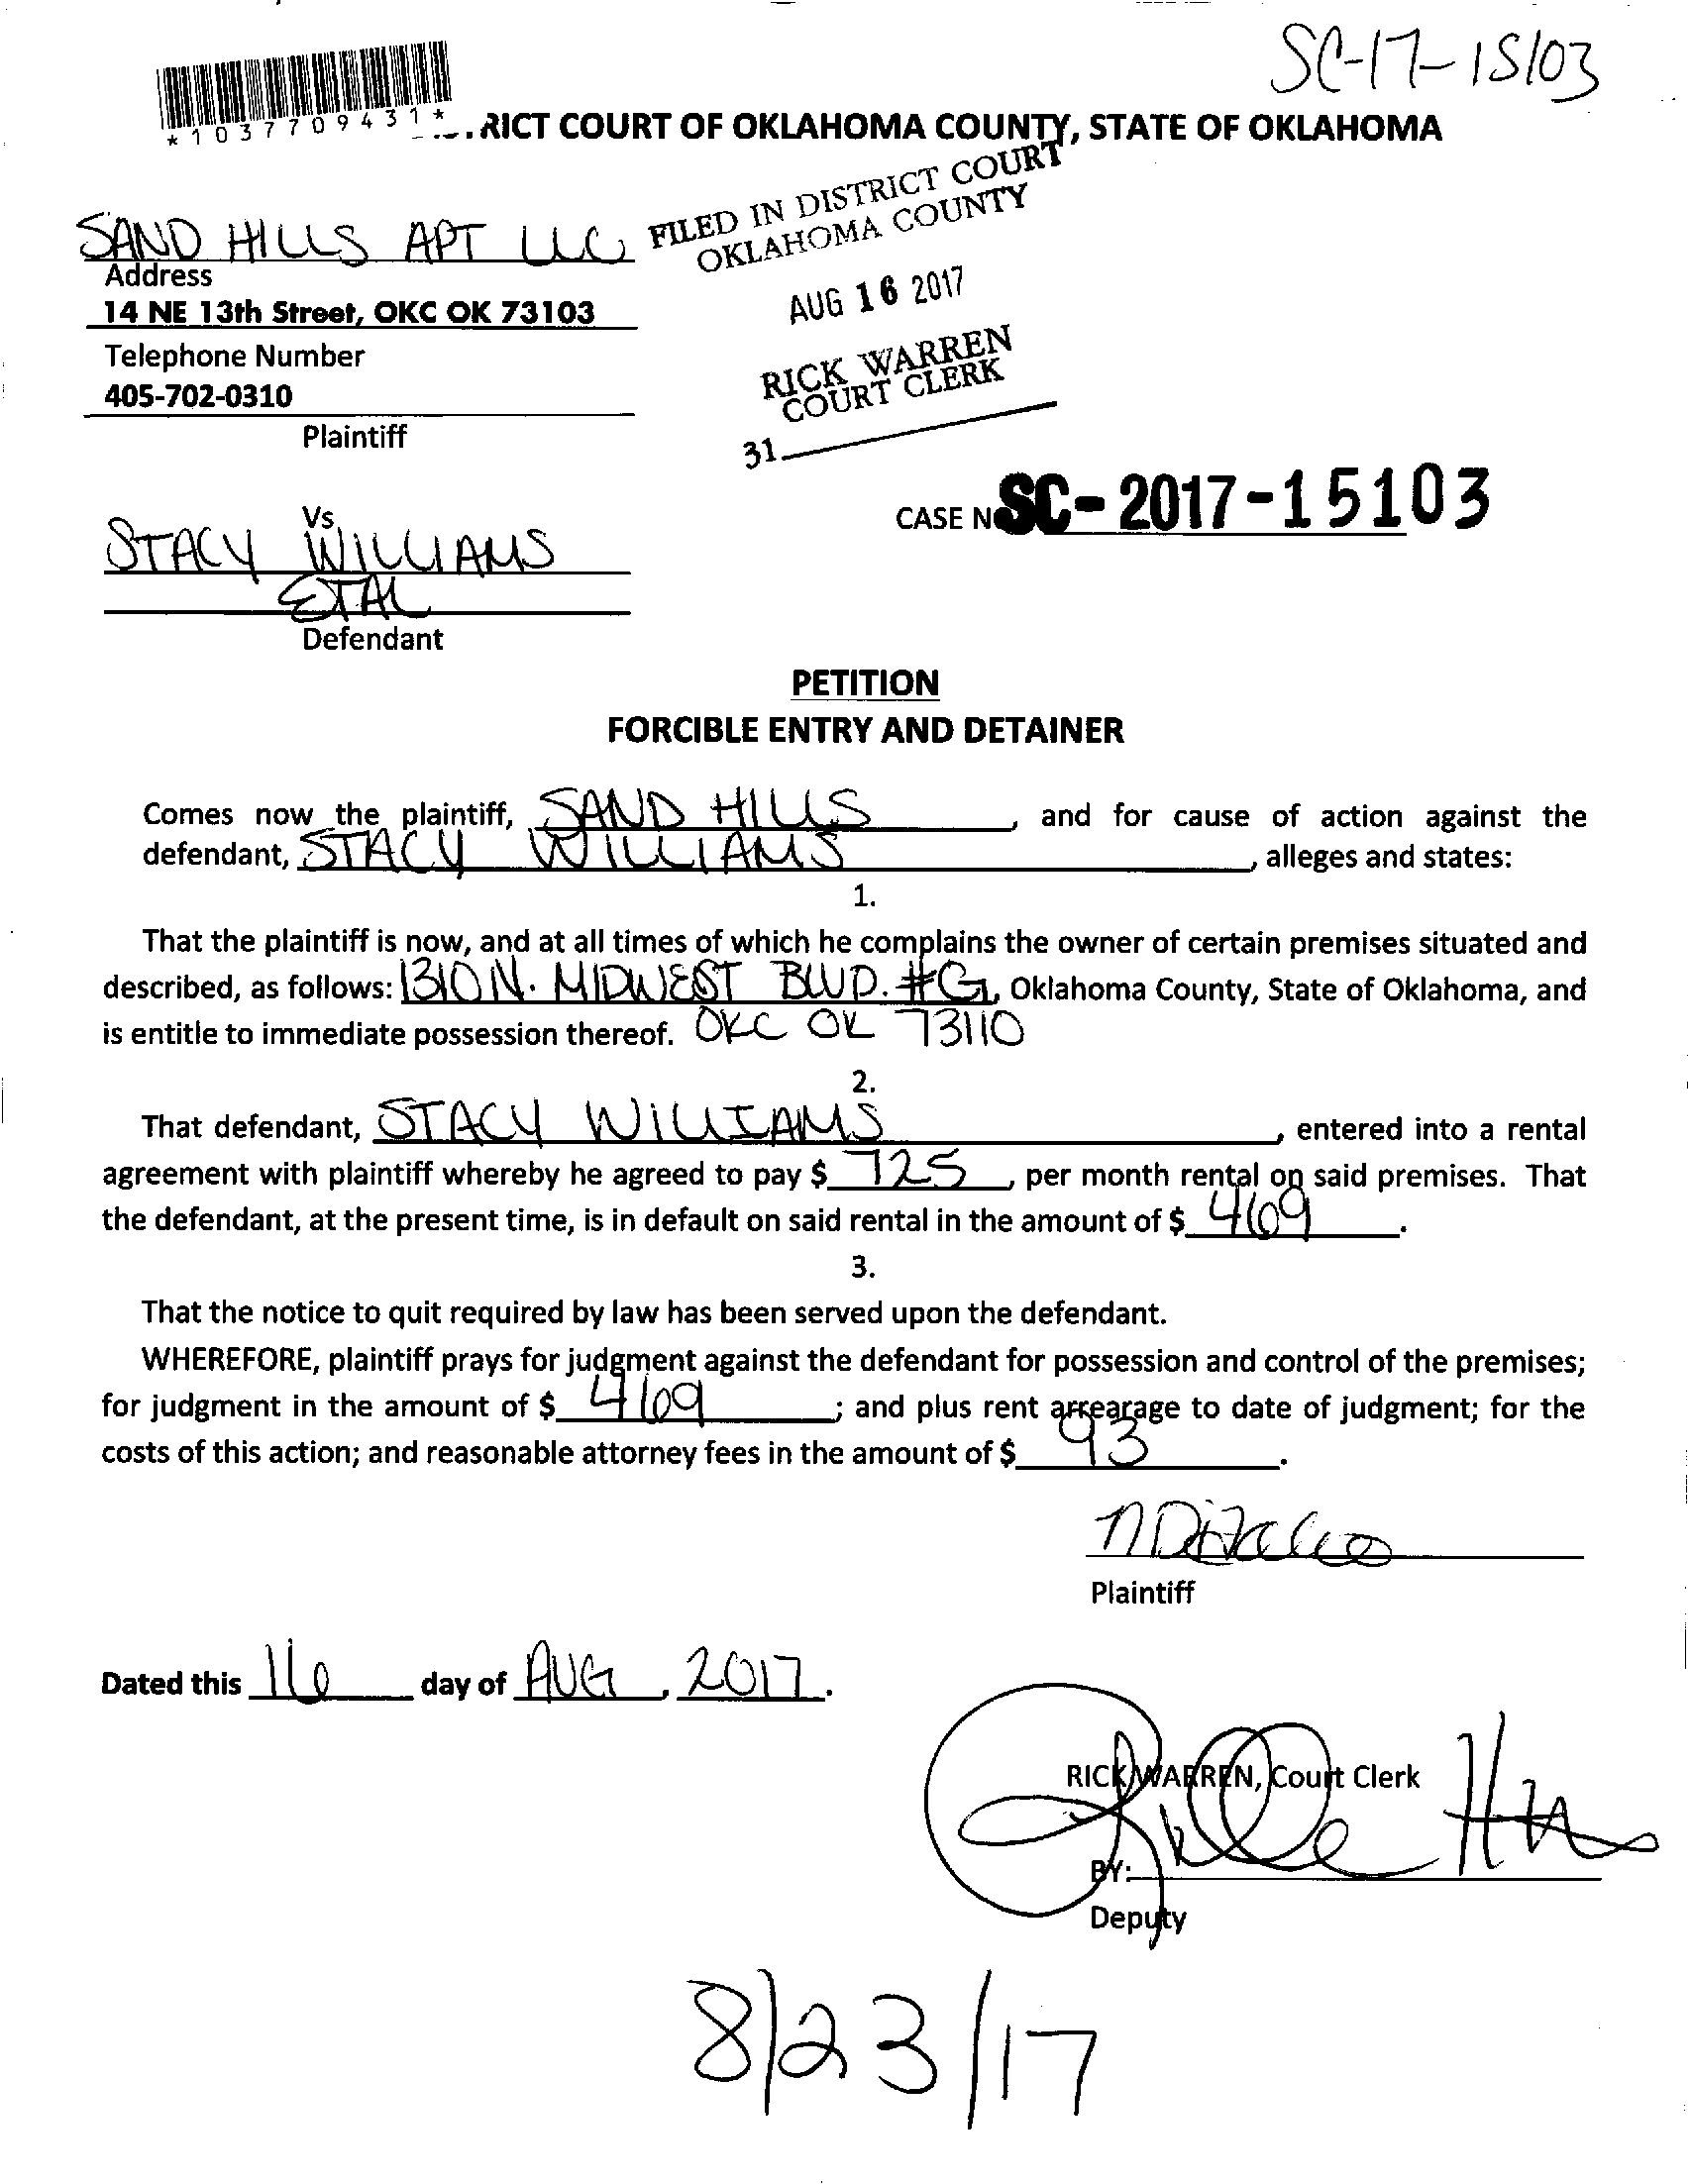 SC-17-15103
*1037709431*
RICT COURT OF OKLAHOMA COUNTY, STATE OF OKLAHOMA
SAND HILLS APT LLC
FILED IN DISTRICT COURT
OKLAHOMA COUNTY
Address
14 NE 13th Street, OKC OK 73103
AUG 16 2017
Telephone Number
405-702-0310
RICK WARREN
COURT CLERK
Plaintiff
31
Vs.
CASE N SC-2017-15103
STACY WILLIAMS
ETAL
Defendant
PETITION
FORCIBLE ENTRY AND DETAINER
Comes now the plaintiff, SAND HILLS, and for cause of action against the
defendant, STACY WILLIAMS, alleges and states:
1.
That the plaintiff is now, and at all times of which he complains the owner of certain premises situated and
described, as follows: 1310 N. MIDWEST BLVD. #G, Oklahoma County, State of Oklahoma, and
is entitle to immediate possession thereof. OKC OK 73110
2.
That defendant, STACY WILLIAMS, entered into a rental
agreement with plaintiff whereby he agreed to pay $ 725, per month rental on said premises. That
the defendant, at the present time, is in default on said rental in the amount of $ 469.
3.
That the notice to quit required by law has been served upon the defendant.
WHEREFORE, plaintiff prays for judgment against the defendant for possession and control of the premises;
for judgment in the amount of $ 469; and plus rent arrearage to date of judgment; for the
costs of this action; and reasonable attorney fees in the amount of $ 93.
Plaintiff
Dated this 16 day of AUG, 2017.
RICK WARREN, Court Clerk
BY:
Deputy
8/23/17